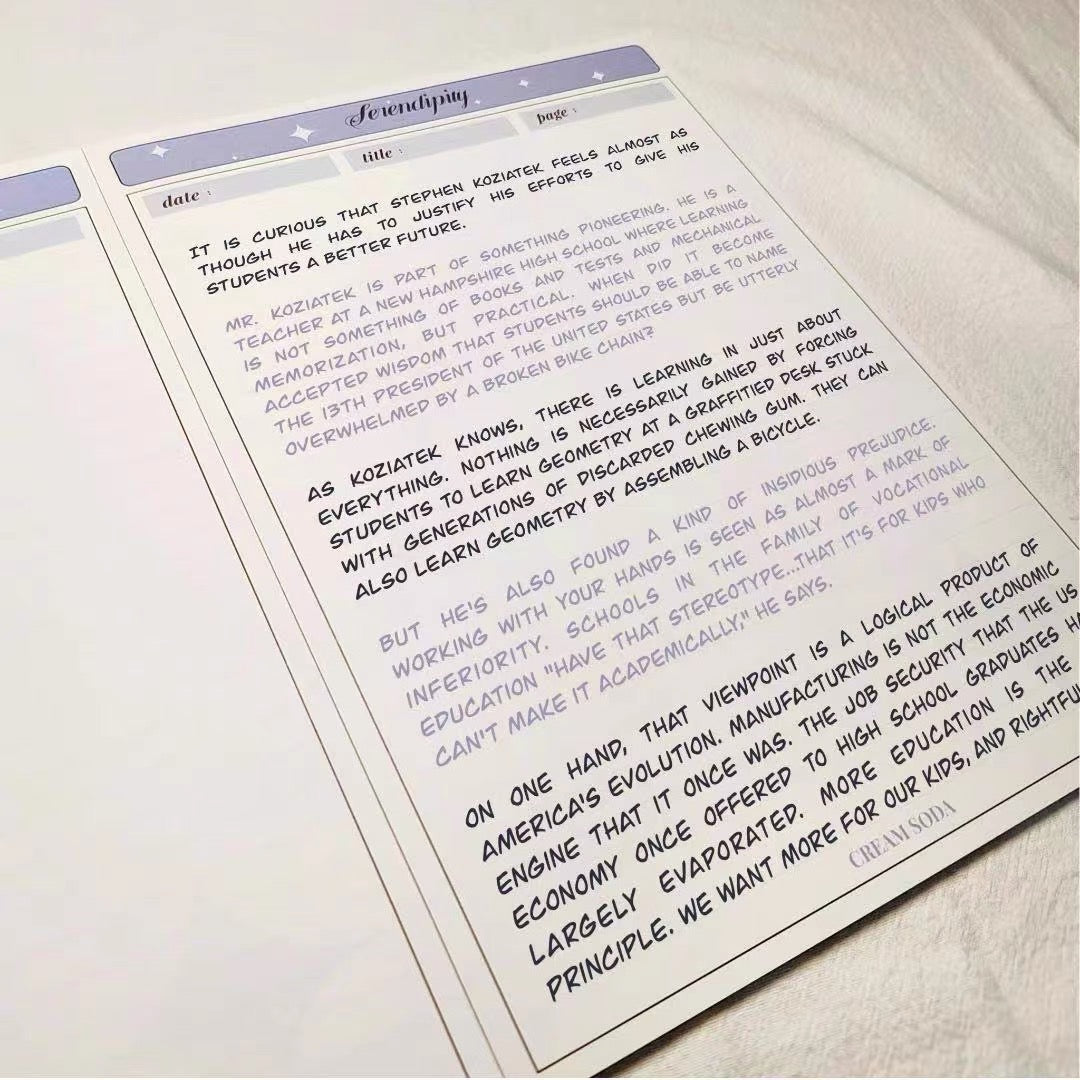 Serendipity
date :
title :
page :
IT IS CURIOUS THAT STEPHEN KOZIATEK FEELS ALMOST AS
THOUGH HE HAS TO JUSTIFY HIS EFFORTS TO GIVE HIS
STUDENTS A BETTER FUTURE.
MR. KOZIATEK IS PART OF SOMETHING PIONEERING. HE IS A
TEACHER AT A NEW HAMPSHIRE HIGH SCHOOL WHERE LEARNING
IS NOT SOMETHING OF BOOKS AND TESTS AND MECHANICAL
MEMORIZATION, BUT PRACTICAL. WHEN DID IT BECOME
ACCEPTED WISDOM THAT STUDENTS SHOULD BE ABLE TO NAME
THE 13TH PRESIDENT OF THE UNITED STATES BUT BE UTTERLY
OVERWHELMED BY A BROKEN BIKE CHAIN?
AS KOZIATEK KNOWS, THERE IS LEARNING IN JUST ABOUT
EVERYTHING. NOTHING IS NECESSARILY GAINED BY FORCING
STUDENTS TO LEARN GEOMETRY AT A GRAFFITIED DESK STUCK
WITH GENERATIONS OF DISCARDED CHEWING GUM. THEY CAN
ALSO LEARN GEOMETRY BY ASSEMBLING A BICYCLE.
BUT HE'S ALSO FOUND A KIND OF INSIDIOUS PREJUDICE.
WORKING WITH YOUR HANDS IS SEEN AS ALMOST A MARK OF
INFERIORITY. SCHOOLS IN THE FAMILY OF VOCATIONAL
EDUCATION "HAVE THAT STEREOTYPE...THAT IT'S FOR KIDS WHO
CAN'T MAKE IT ACADEMICALLY," HE SAYS.
ON ONE HAND, THAT VIEWPOINT IS A LOGICAL PRODUCT OF
AMERICA'S EVOLUTION. MANUFACTURING IS NOT THE ECONOMIC
ENGINE THAT IT ONCE WAS. THE JOB SECURITY THAT THE US
ECONOMY ONCE OFFERED TO HIGH SCHOOL GRADUATES
LARGELY EVAPORATED. MORE EDUCATION IS THE
PRINCIPLE. WE WANT MORE FOR OUR KIDS, AND
CREAM SODA